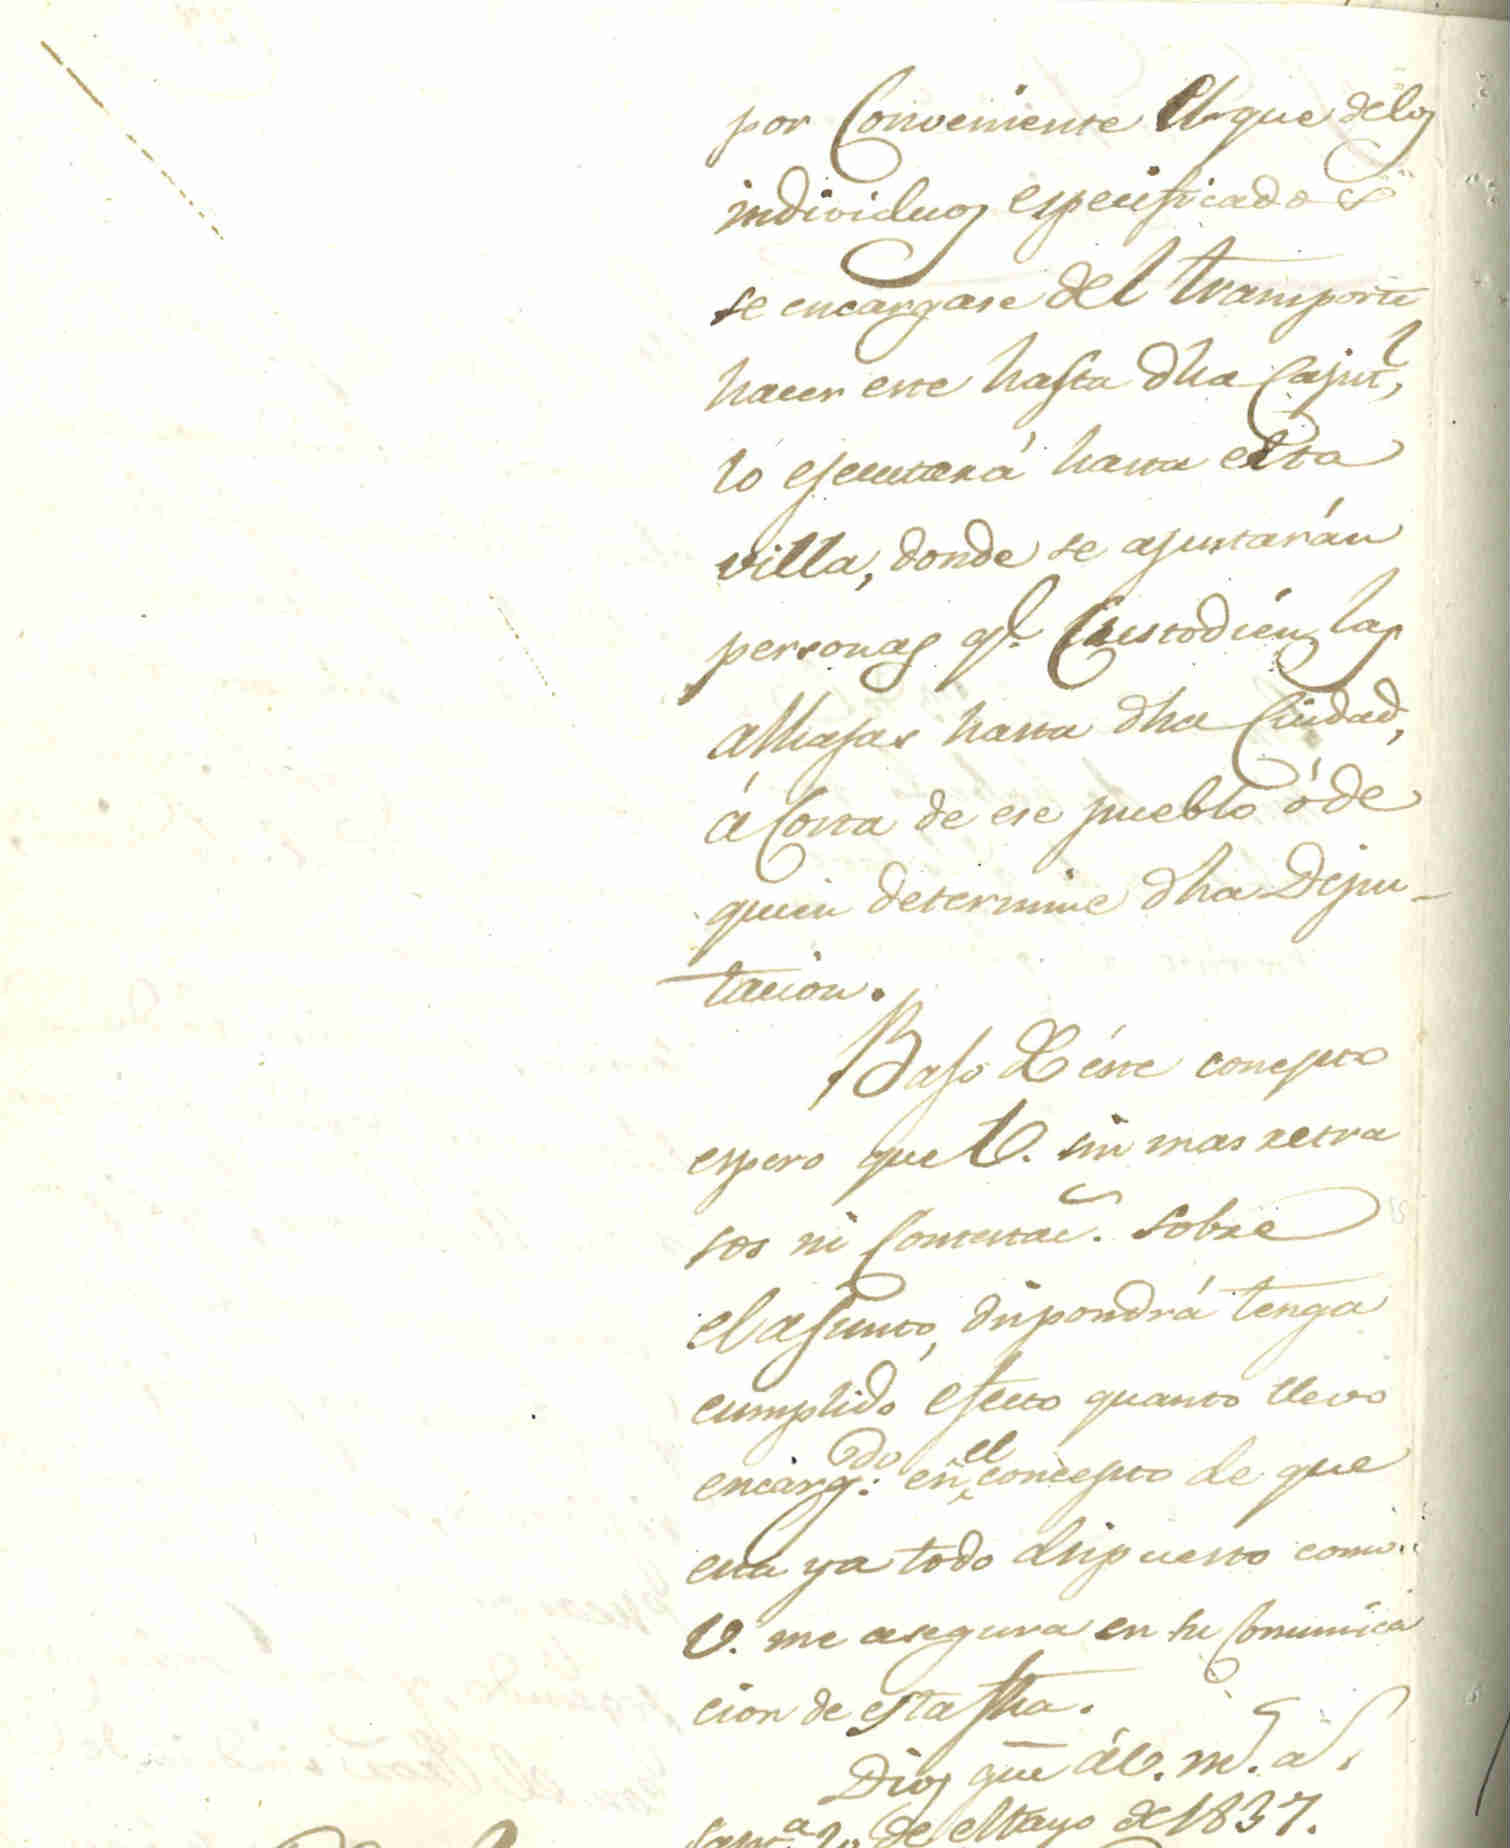 por Conveniente El que delos
individuos especificados
se encargase del transporte
hacer este hasta dha Capit.l,
lo ejecutará hasta esta
villa, donde se ajustarán
personas q.e Custodien las
alhajas hasta dha Ciudad,
á Costa de ese pueblo ó de
quien determine dha Dipu-
tacion.
Bajo de éste concepto
espero que V. sin mas retra
sos ni Contestac.n sobre
el asunto, dispondrá tenga
cumplido efecto quanto llevo
encarg.do en el concepto de que
está ya todo dispuesto como
V. me asegura en su Comunica
cion de esta fha.
Dios gue á V. m.s a.s
de Mayo de 1837.